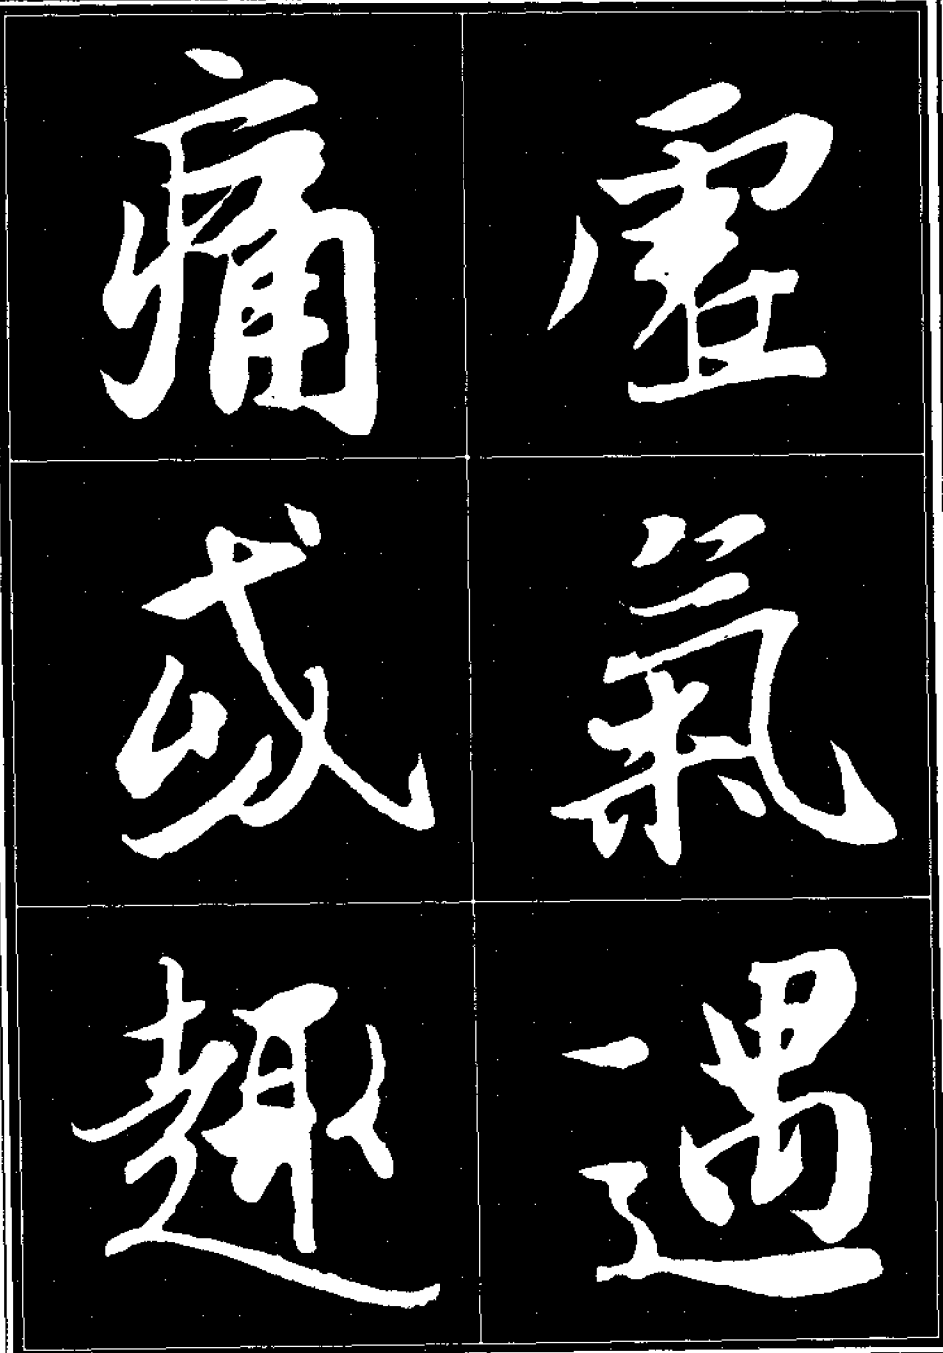 虚氣遇
痛或趣